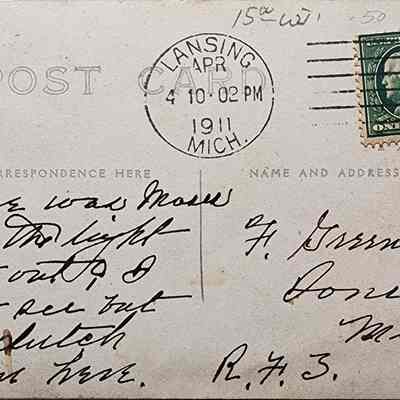 15¢ .50
POST CARD
LANSING
APR
4 10·02 PM
1911
MICH.
ONE
RRESPONDENCE HERE
NAME AND ADDRESS
E was Moses
The light
out ? I
see but
dutch
here.
F. Green
Dons
M
R. F. 3.